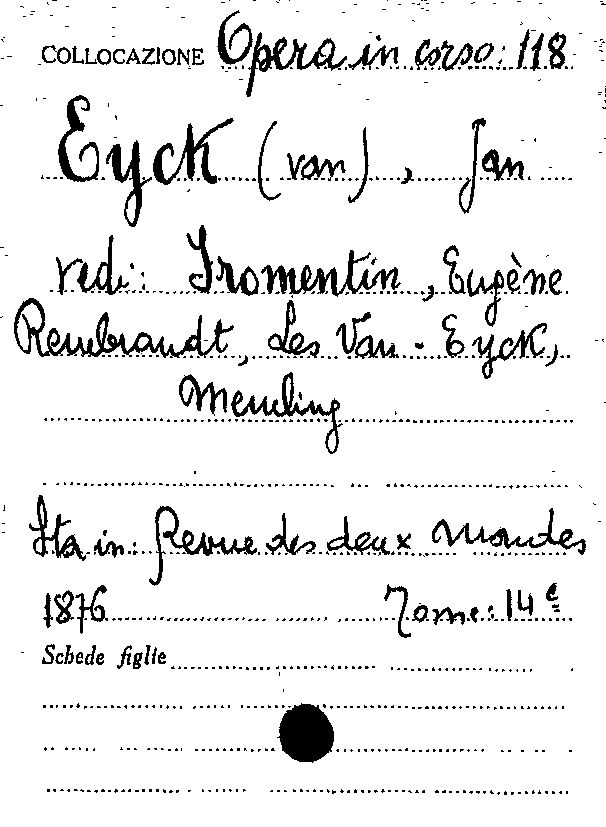 COLLOCAZIONE Opera in corso: 118
Eyck (van), Jan
vedi: Fromentin, Eugène
Rembrandt, Les Van-Eyck,
Memling
Sta in: Revue des deux Mondes
1876 Tome: 14e
Schede figlie